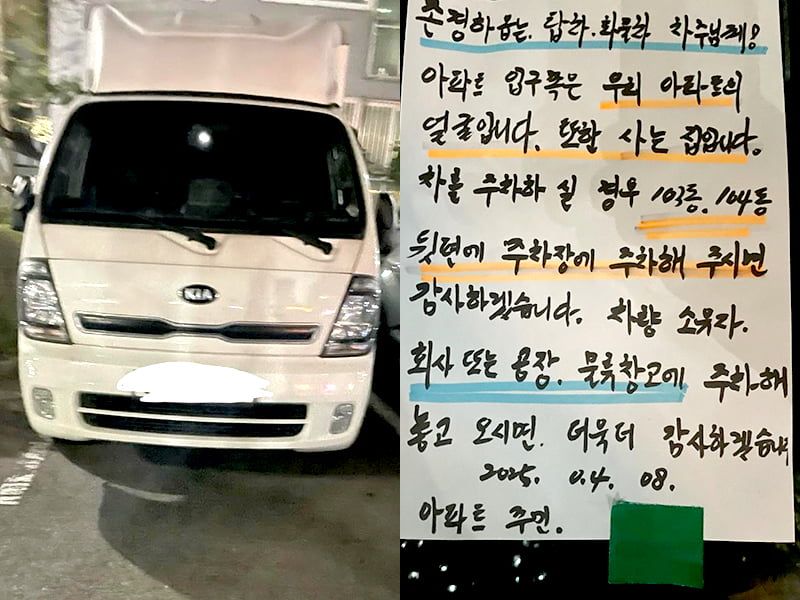 KIA
존경하옵는. 탑차. 화물차 차주님께!
아파트 입구쪽은 우리 아파트의
얼굴입니다. 또한 사는 집입니다.
차를 주차하 실 경우 103동. 104동
뒷편에 주차장에 주차해 주시면
감사하겠습니다. 차량 소유자.
회사 또는 공장. 물류창고에 주차.해
놓고 오시면. 더욱더 감사하겠습니다
2025. 0.4. 08.
아파트 주민.